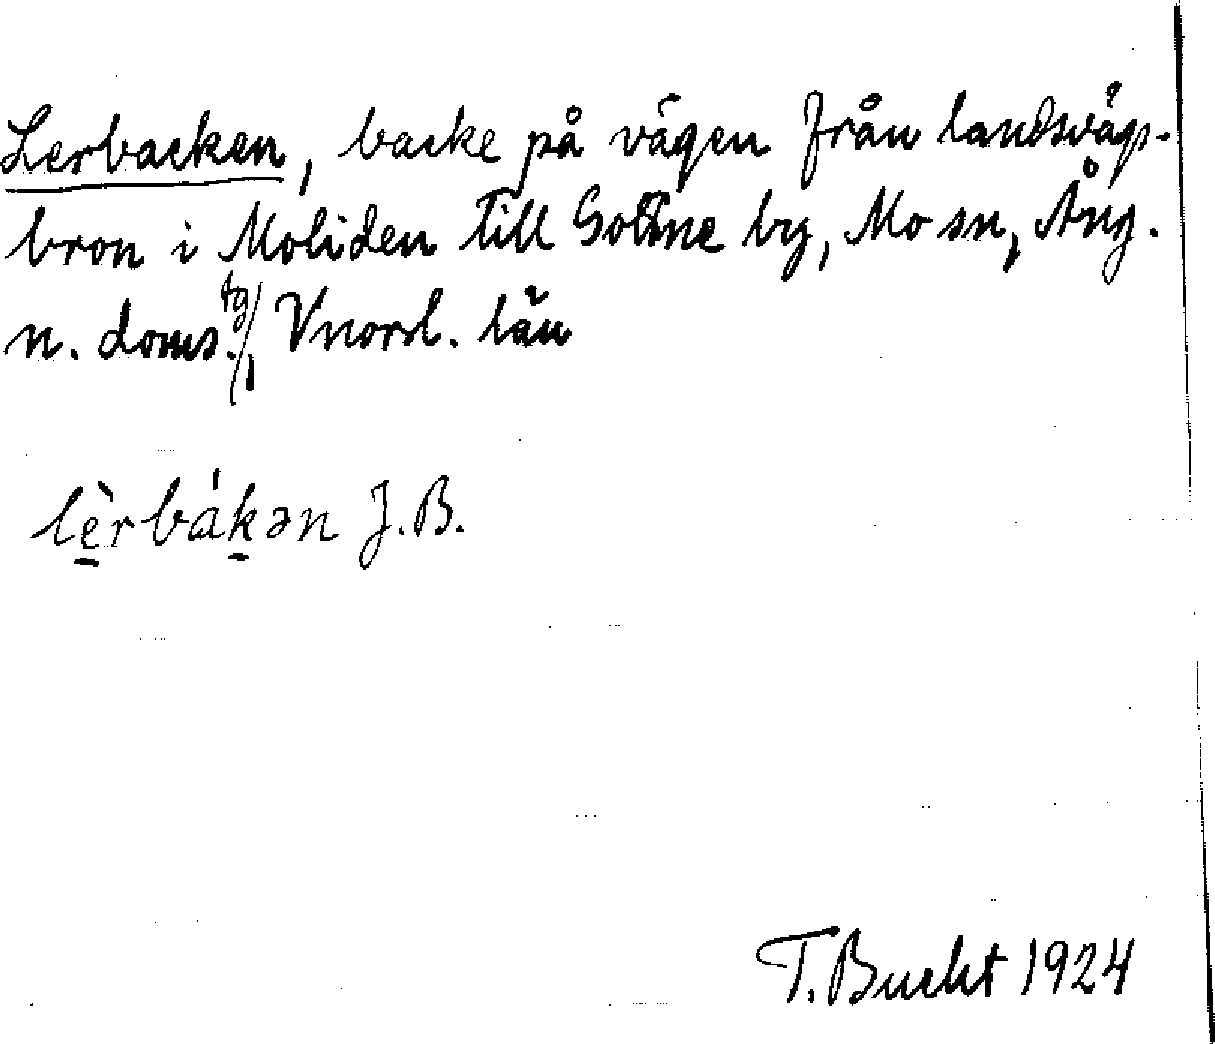 Lerbacken, backe på vägen från landsvägs-
bron i Moliden till Gottne by, Mo sn, Ång.
n. doms.tg/, Vnorrl. län
lèrbákən J.B.
T. Bucht 1924